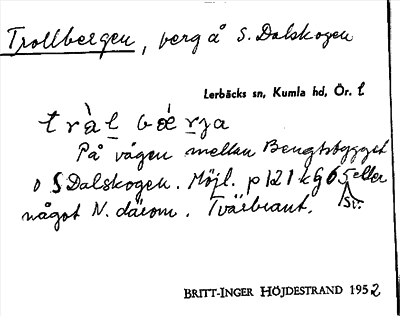 Trollbergen, berg å S. Dalskogen
Lerbäcks sn, Kumla hd, Ör. l
tràl bǽrja
På vägen mellan Bengtsbygget
o S Dalskogen. Möjl. p 121 kg 65 eller
något N. därom. Tvärbrant. Str.
BRITT-INGER HÖJDESTRAND 1952